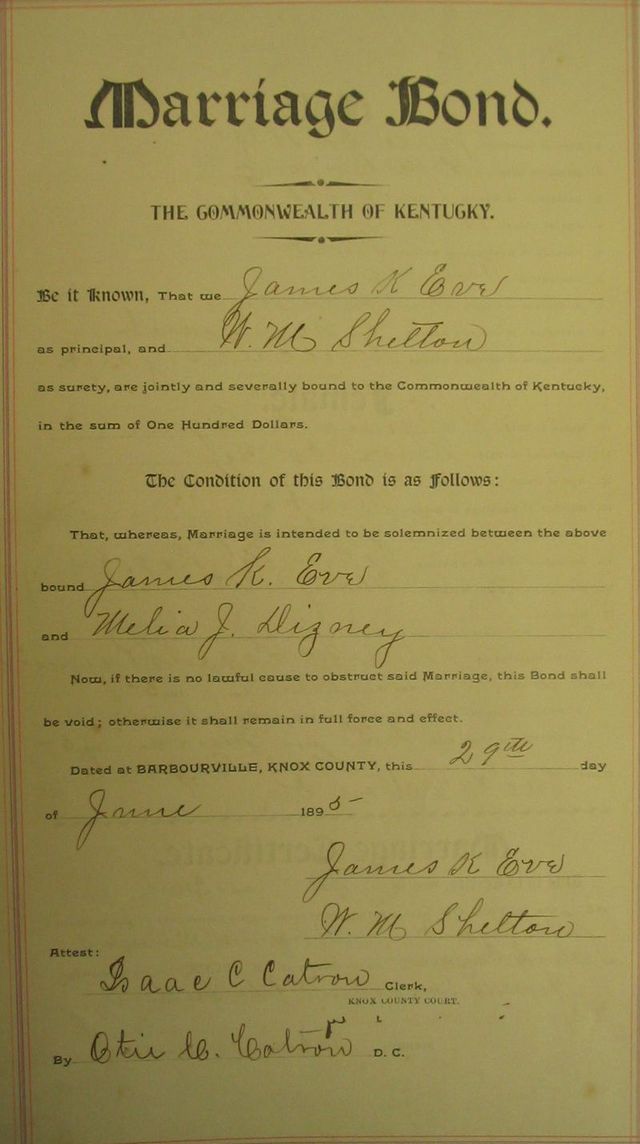 Marriage Bond.
THE COMMONWEALTH OF KENTUCKY.
Be it known, That we James K Eve
as principal, and W. M Shelton
as surety, are jointly and severally bound to the Commonwealth of Kentucky,
in the sum of One Hundred Dollars.
The Condition of this Bond is as Follows:
That, whereas, Marriage is intended to be solemnized between the above
bound James K. Eve
and Melia J. Dizney
Now, if there is no lawful cause to obstruct said Marriage, this Bond shall
be void; otherwise it shall remain in full force and effect.
Dated at BARBOURVILLE, KNOX COUNTY, this 29th day
of June 1895
James K Eve
W. M Shelton
Attest:
Isaac C Catron Clerk,
KNOX COUNTY COURT.
By C. Catron D. C.